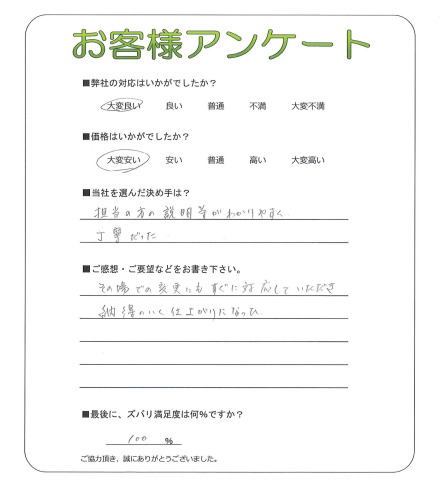 お客様アンケート
■弊社の対応はいかがでしたか？
大変良い 良い 普通 不満 大変不満
■価格はいかがでしたか？
大変安い 安い 普通 高い 大変高い
■当社を選んだ決め手は？
担当の方の説明等がわかりやすく
丁寧だった
■ご感想・ご要望などをお書き下さい。
その場での変更にもすぐに対応していただき
納得のいく仕上がりになっ
■最後に、ズバリ満足度は何％ですか？
100 ％
ご協力頂き、誠にありがとうございました。